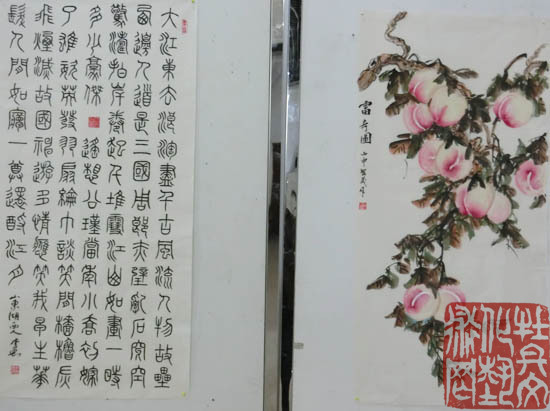 大江東去浪淘盡千古風流人物故壘
西邊人道是三國周郎赤壁亂石穿空
驚濤拍岸卷起千堆雪江山如畫一時
多少豪傑遙想公瑾當年小喬初嫁
了雄姿英發羽扇綸巾談笑間檣櫓灰
飛煙滅故國神遊多情應笑我早生華
髮人間如夢一尊還酹江月